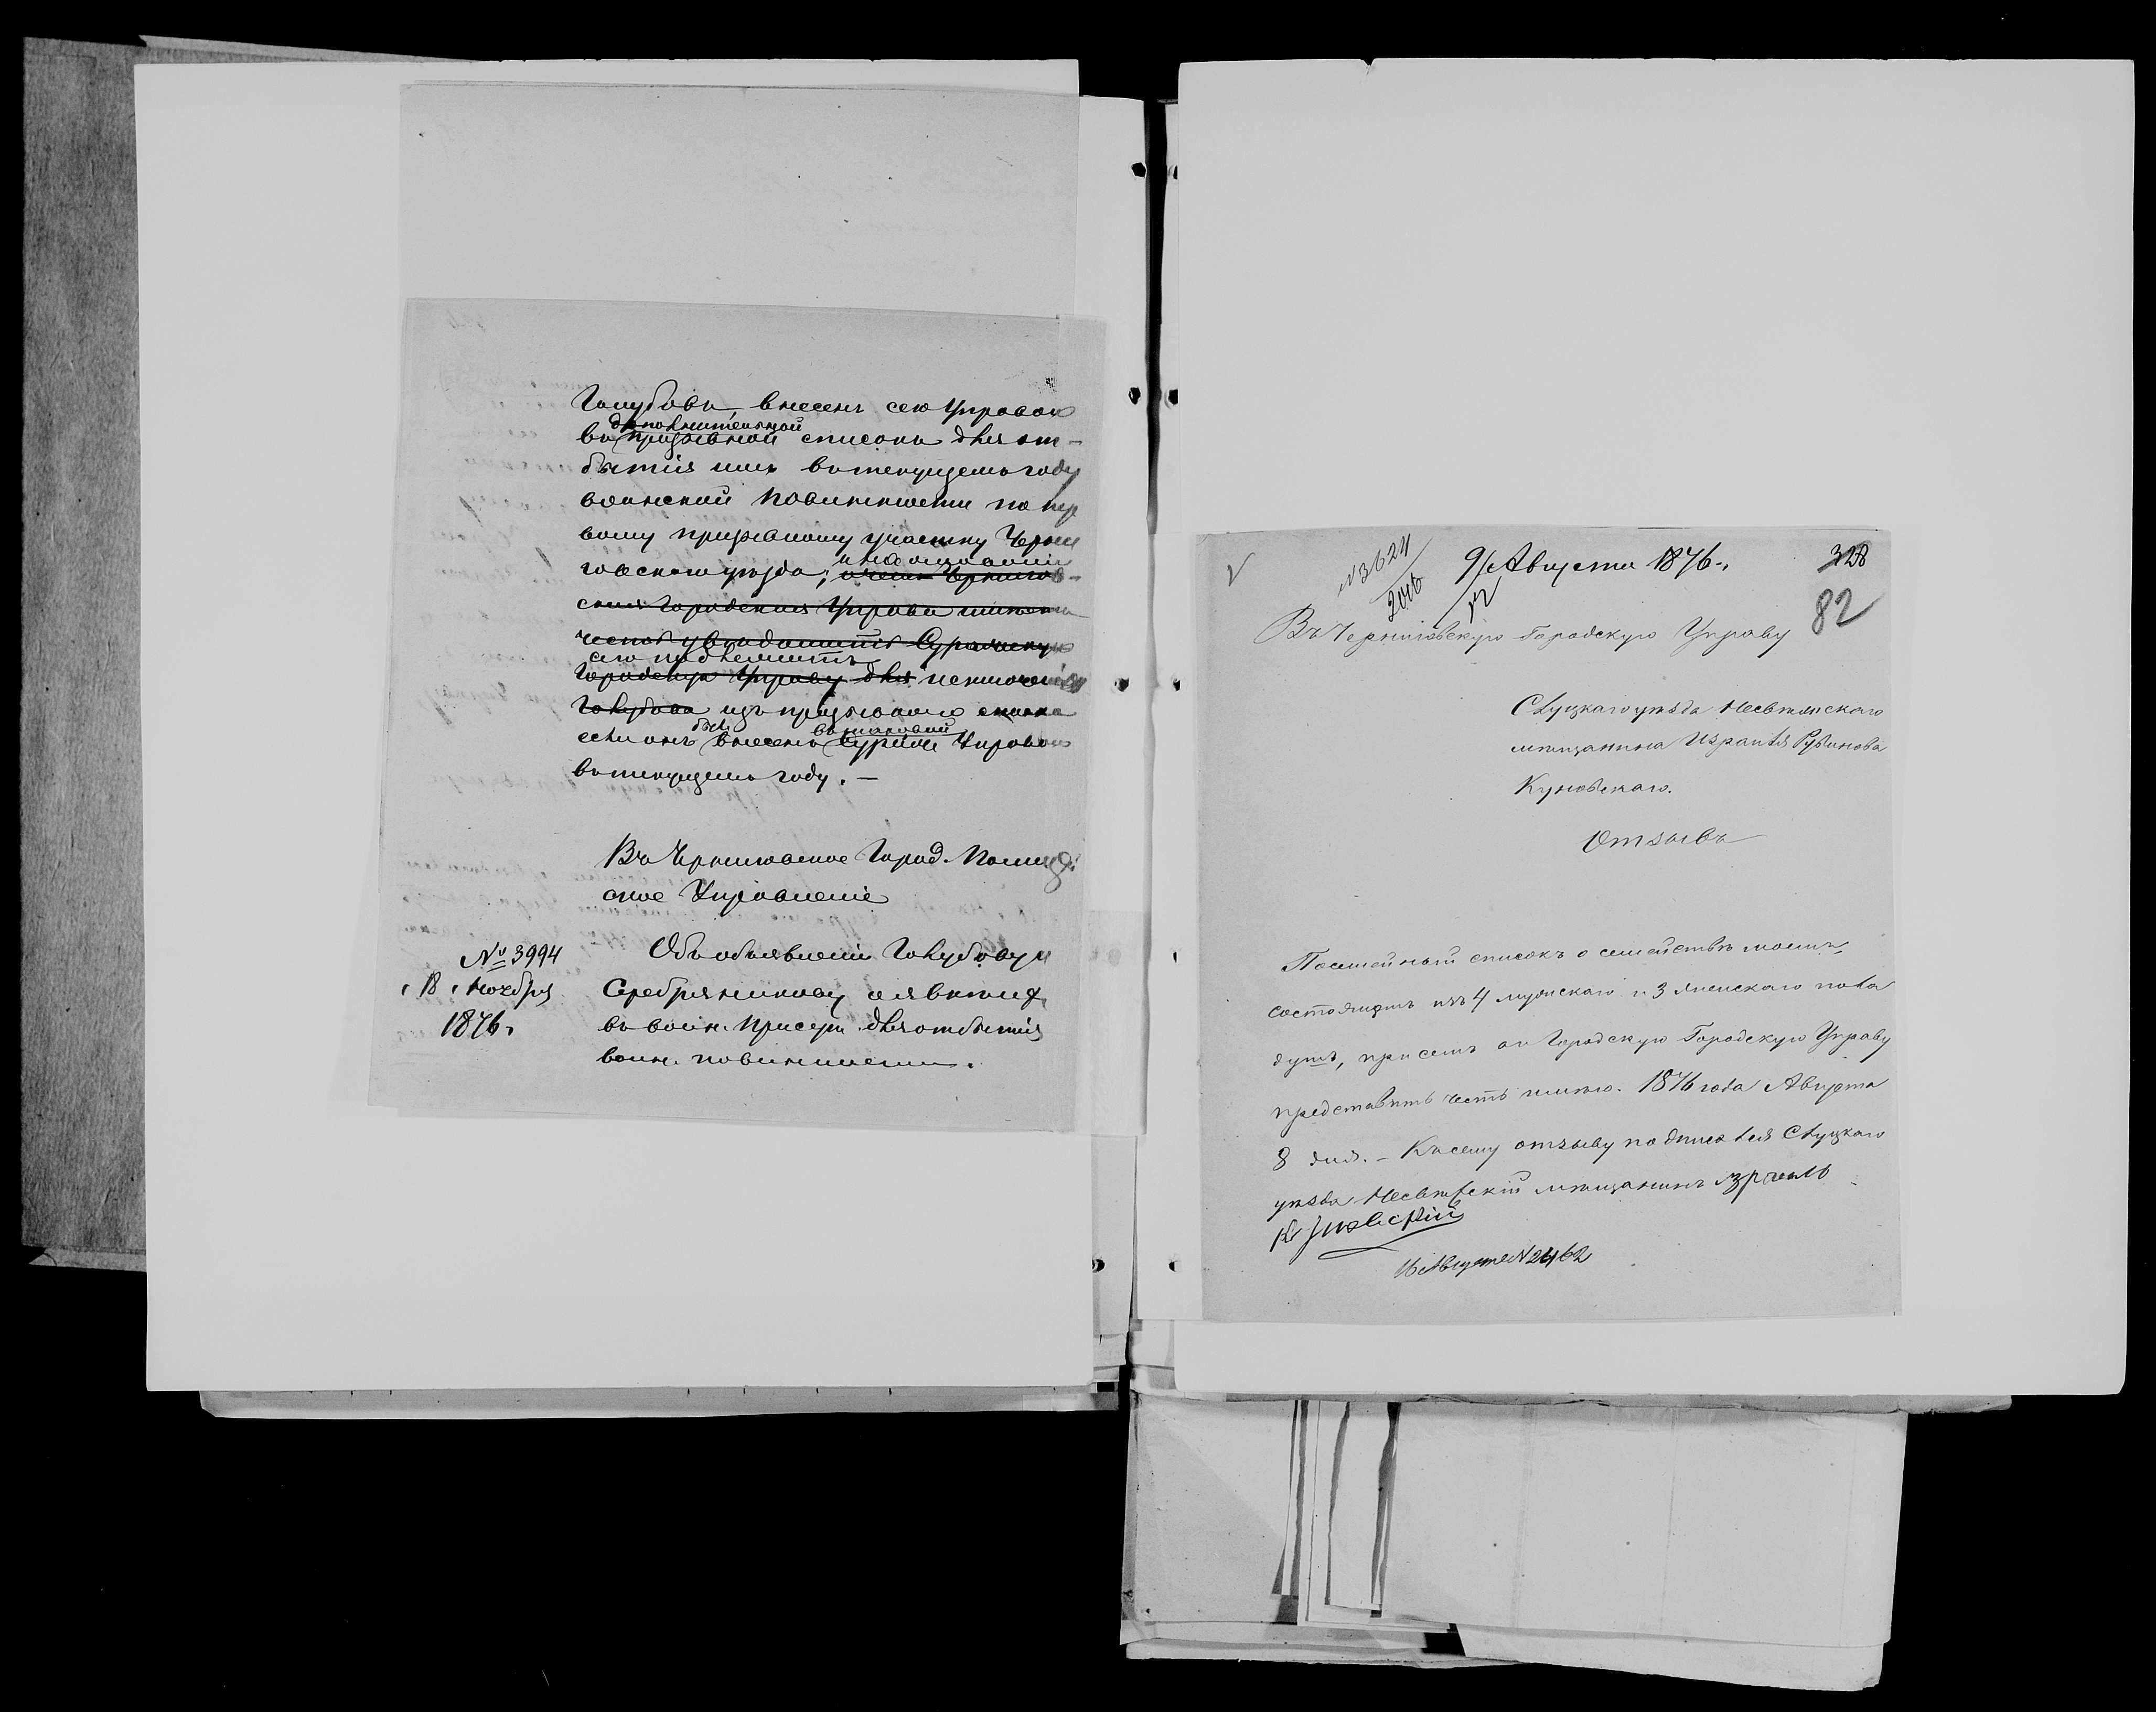 Голубовъ, внесенъ сею Управою
дополнительной
въ призывной списокъ для от-
бытія имъ въ текущемъ году
воинской повинности по пер
вому призывному участку Черни
говскаго уѣзда;
ская Городская Управа имѣетъ
честь увѣдомить Суражскую
его подлежитъ
Городскую Управу для исключенія
Голубова изъ призывнаго списка
если онъ былъ внесенъ Управою
въ текущемъ году. —
Въ Черниговское Город. Полицей
ское Управленіе
№ 3994
18 Ноября
1876.
Объ объявленіи Голубову и
Серебряникову о явкѣ
въ воин. Присут. для отбытія
воин. повинности.
№3624
9 Августа 1876.
328
82
Въ Черниговскую Городскую Управу
Слуцкаго уѣзда Несвижскаго
мѣщанина Израиля Рубинова
Куновскаго.
Отзывъ
Посемейный списокъ о семействѣ моемъ,
состоящемъ изъ 4 мужскаго и 3 женскаго пола
душъ, при семъ въ Городскую Городскую Управу
представить честь имѣю. 1876 года Августа
8 дня. – Къ сему отзыву подписался Слуцкаго
уѣзда Несвижскій мѣщанинъ Израиль
Куновскій
16 Августа №2462